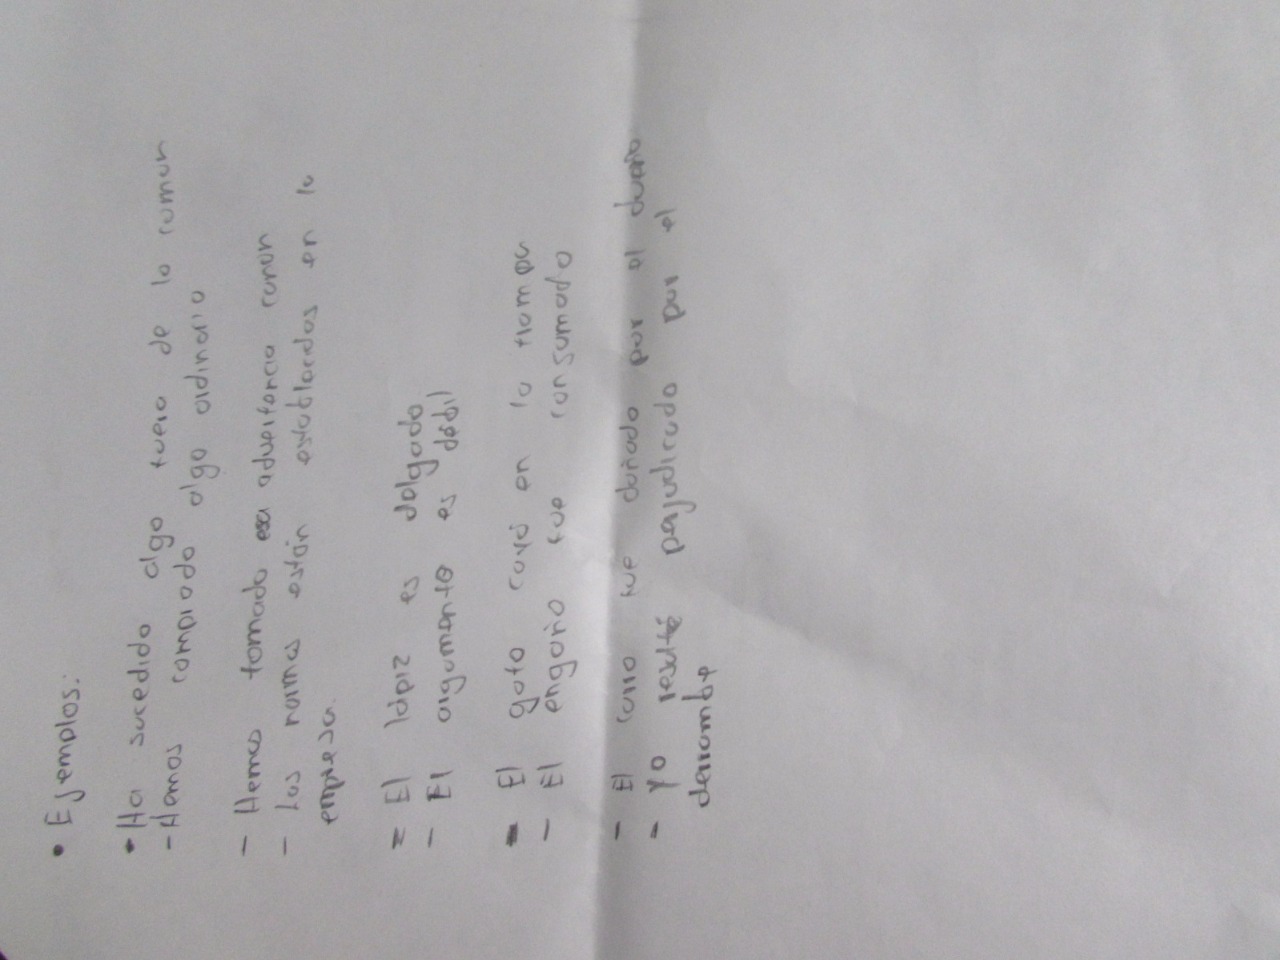 • Ejemplos:
• Ha sucedido algo fuera de lo comun
- Hemos comprado algo ordinario
- Hemos tomado esa advertencia comun
- Las normas están establecidas en la
empresa.
- El lápiz es delgado
- El argumento es débil
- El gato cayó en la trampa
- El engaño fue consumado
- El carro fue dañado por el dueño
- Yo resulté perjudicado por el
derrumbe